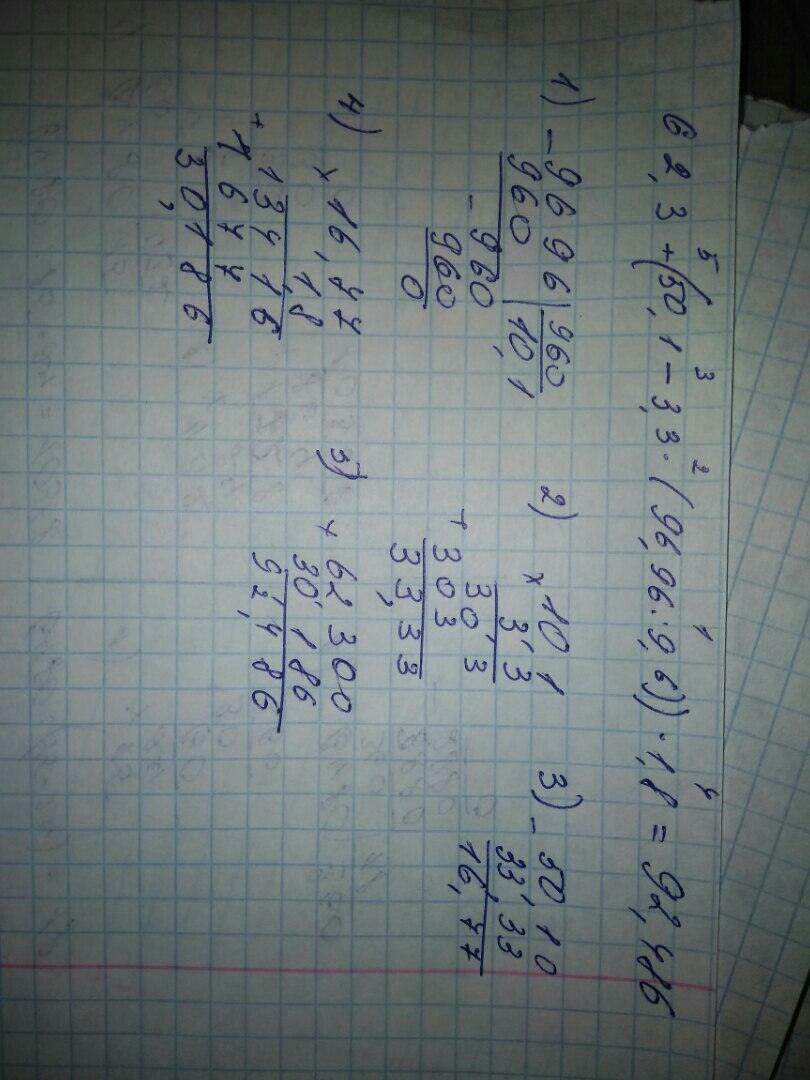 5 3 2 1 4
62,3 + (50,1 - 3,3 · (96,96 : 9,6)) · 1,8 = 92,486
1) - 9696 | 960
960 | 10,1
- 960
960
0
2) × 10,1
3,3
+ 30,3
303
33,33
3) - 50,10
33,33
16,77
4) × 16,77
1,8
+ 13416
1677
30,186
5) + 62,300
30,186
92,486